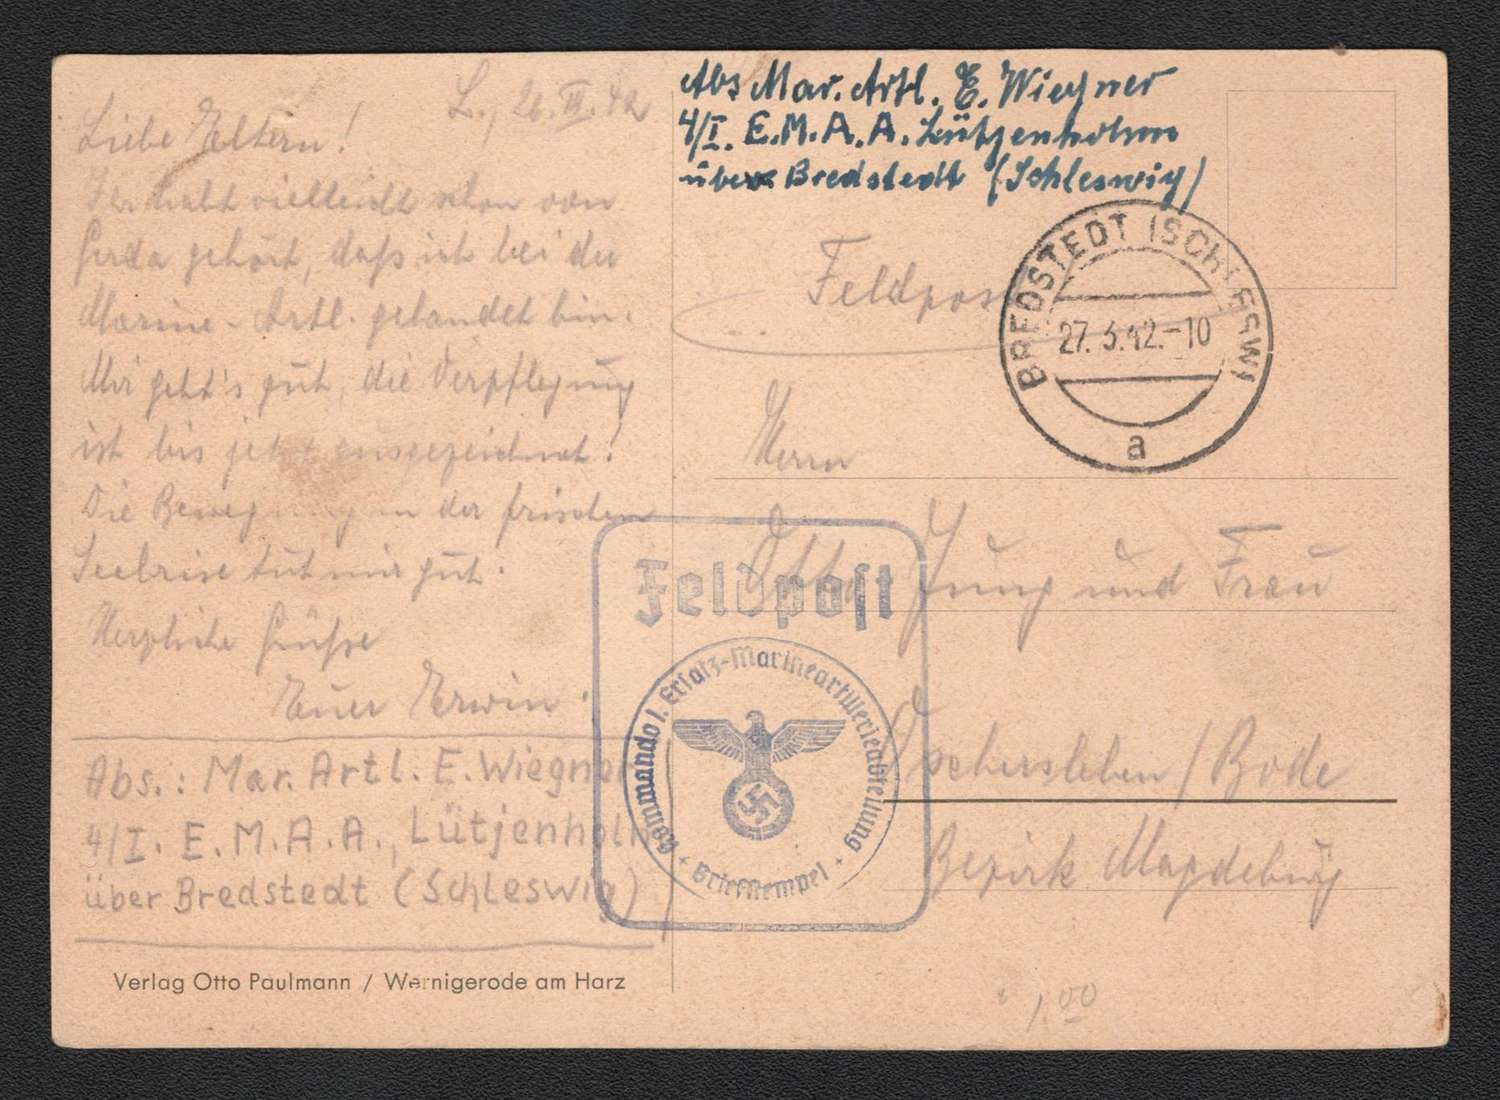 L., 26. III. 42
Liebe Eltern!
Ihr habt vielleicht schon von
Gerda gehört, daß ich bei der
Marine-Artl. gelandet bin.
Mir geht's gut, die Verpflegung
ist bis jetzt ausgezeichnet!
Die Bewegung in der frischen
Seebrise tut mir gut.
Herzliche Grüße
Euer Erwin.
Abs.: Mar. Artl. E. Wiegner
4/I. E.M.A.A., Lütjenholm
über Bredstedt (Schleswig)
Verlag Otto Paulmann / Wernigerode am Harz
Abs Mar. Artl. E. Wiegner
4/I. E.M.A.A. Lütjenholm
über Bredstedt (Schleswig)
Feldpost
BREDSTEDT (SCHLESW)
27.3.42.-10
a
Herrn
Otto Jung und Frau
Oschersleben / Bode
Bezirk Magdeburg
Feldpost
Kommando I. Ersatz-Marineartillerieabteilung
Briefstempel
1,00